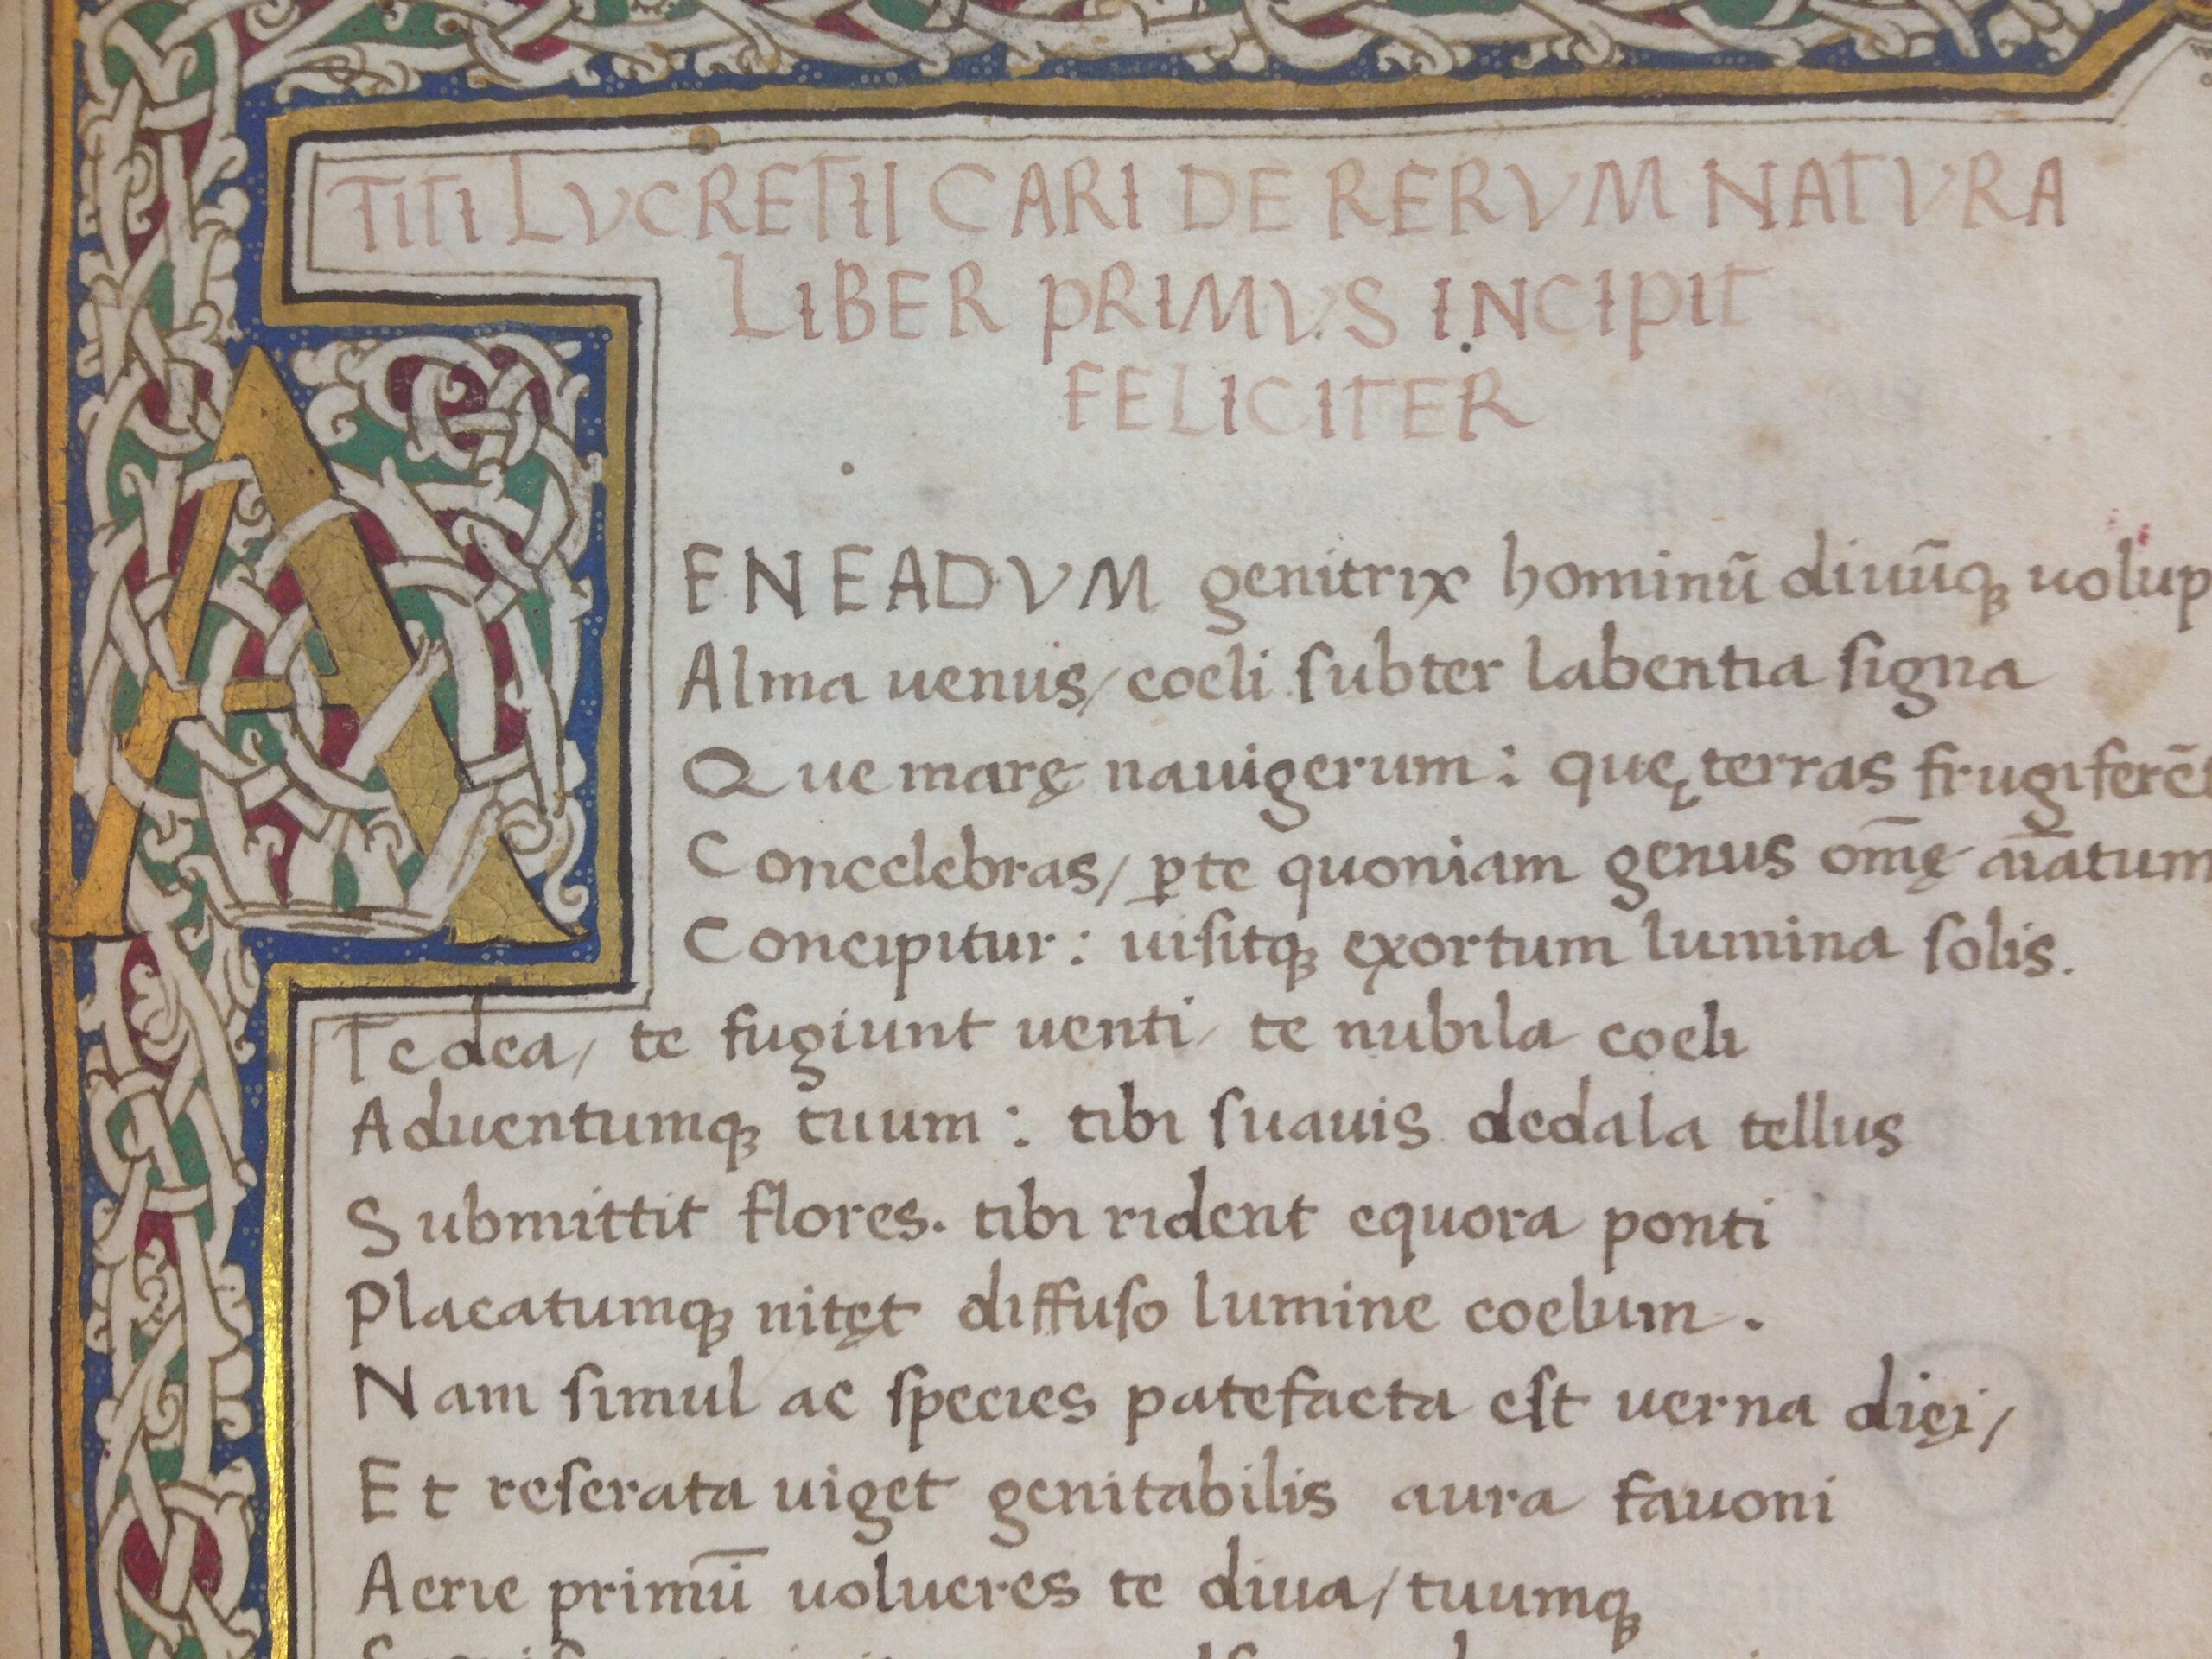 TITI LVCRETII CARI DE RERVM NATVRA
LIBER PRIMVS INCIPIT
FELICITER
AENEADVM genitrix hominū diuūqꝫ uolup
Alma uenus/ coeli subter labentia signa
Que marę nauigerum: quę terras frugiferēt
Concelebras/ ꝑ te quoniam genus om̄ę aīatum
Concipitur: uisitqꝫ exortum lumina solis.
Te dea/ te fugiunt uenti/ te nubila coeli
Aduentumqꝫ tuum: tibi suauis dedala tellus
Submittit flores. tibi rident equora ponti
Placatumqꝫ nitęt diffuso lumine coelum.
Nam simul ac species patefacta est uerna dięi/
Et reserata uiget genitabilis aura fauoni
Aerie primū uolucres te diua/ tuumqꝫ